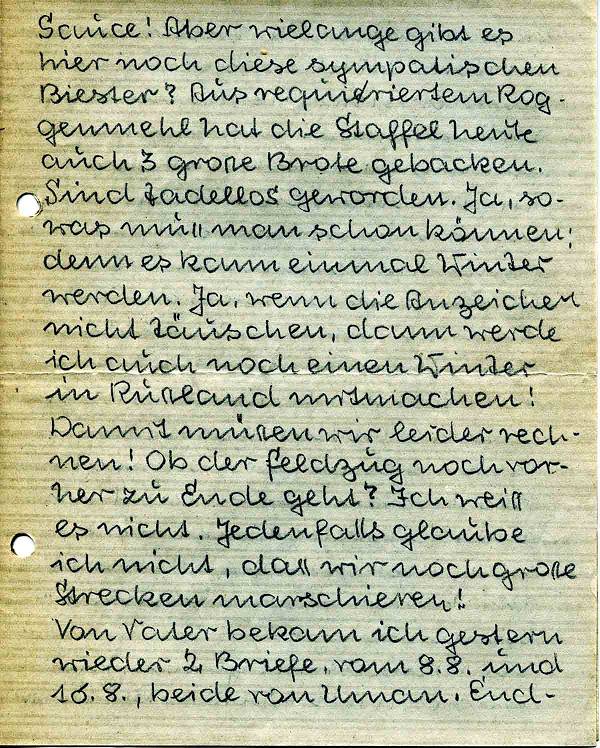 Sauce! Aber wielange gibt es
hier noch diese sympatischen
Biester? Aus requiriertem Rog-
genmehl hat die Staffel heute
auch 3 große Brote gebacken.
Sind tadellos geworden. Ja, so-
was muß man schon können;
denn es kann einmal Winter
werden. Ja, wenn die Anzeichen
nicht täuschen, dann werde
ich auch noch einen Winter
in Rußland mitmachen!
Damit müßen wir leider rech-
nen! Ob der Feldzug noch vor-
her zu Ende geht? Ich weiß
es nicht. Jedenfalls glaube
ich nicht, daß wir noch große
Strecken marschieren!
Von Vater bekam ich gestern
wieder 2 Briefe, vom 8.8. und
16.8., beide von Uman. End-